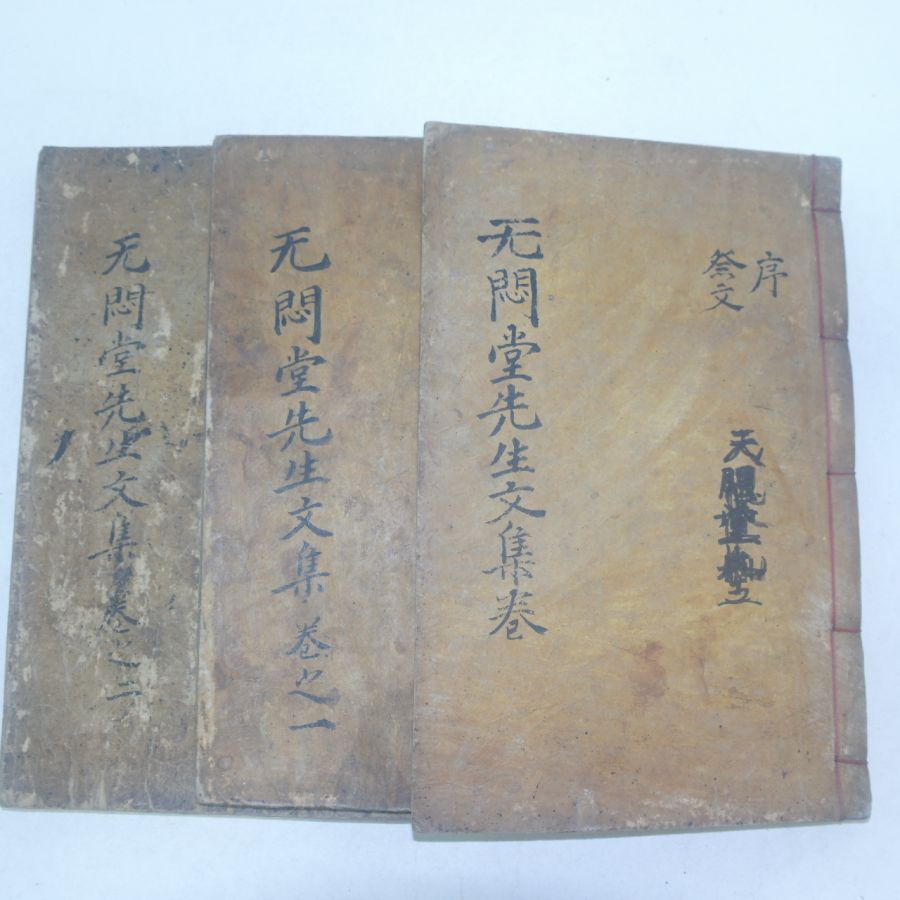 序
祭文
天五
无悶堂先生文集卷
无悶堂先生文集卷之一
无悶堂先生文集卷之二